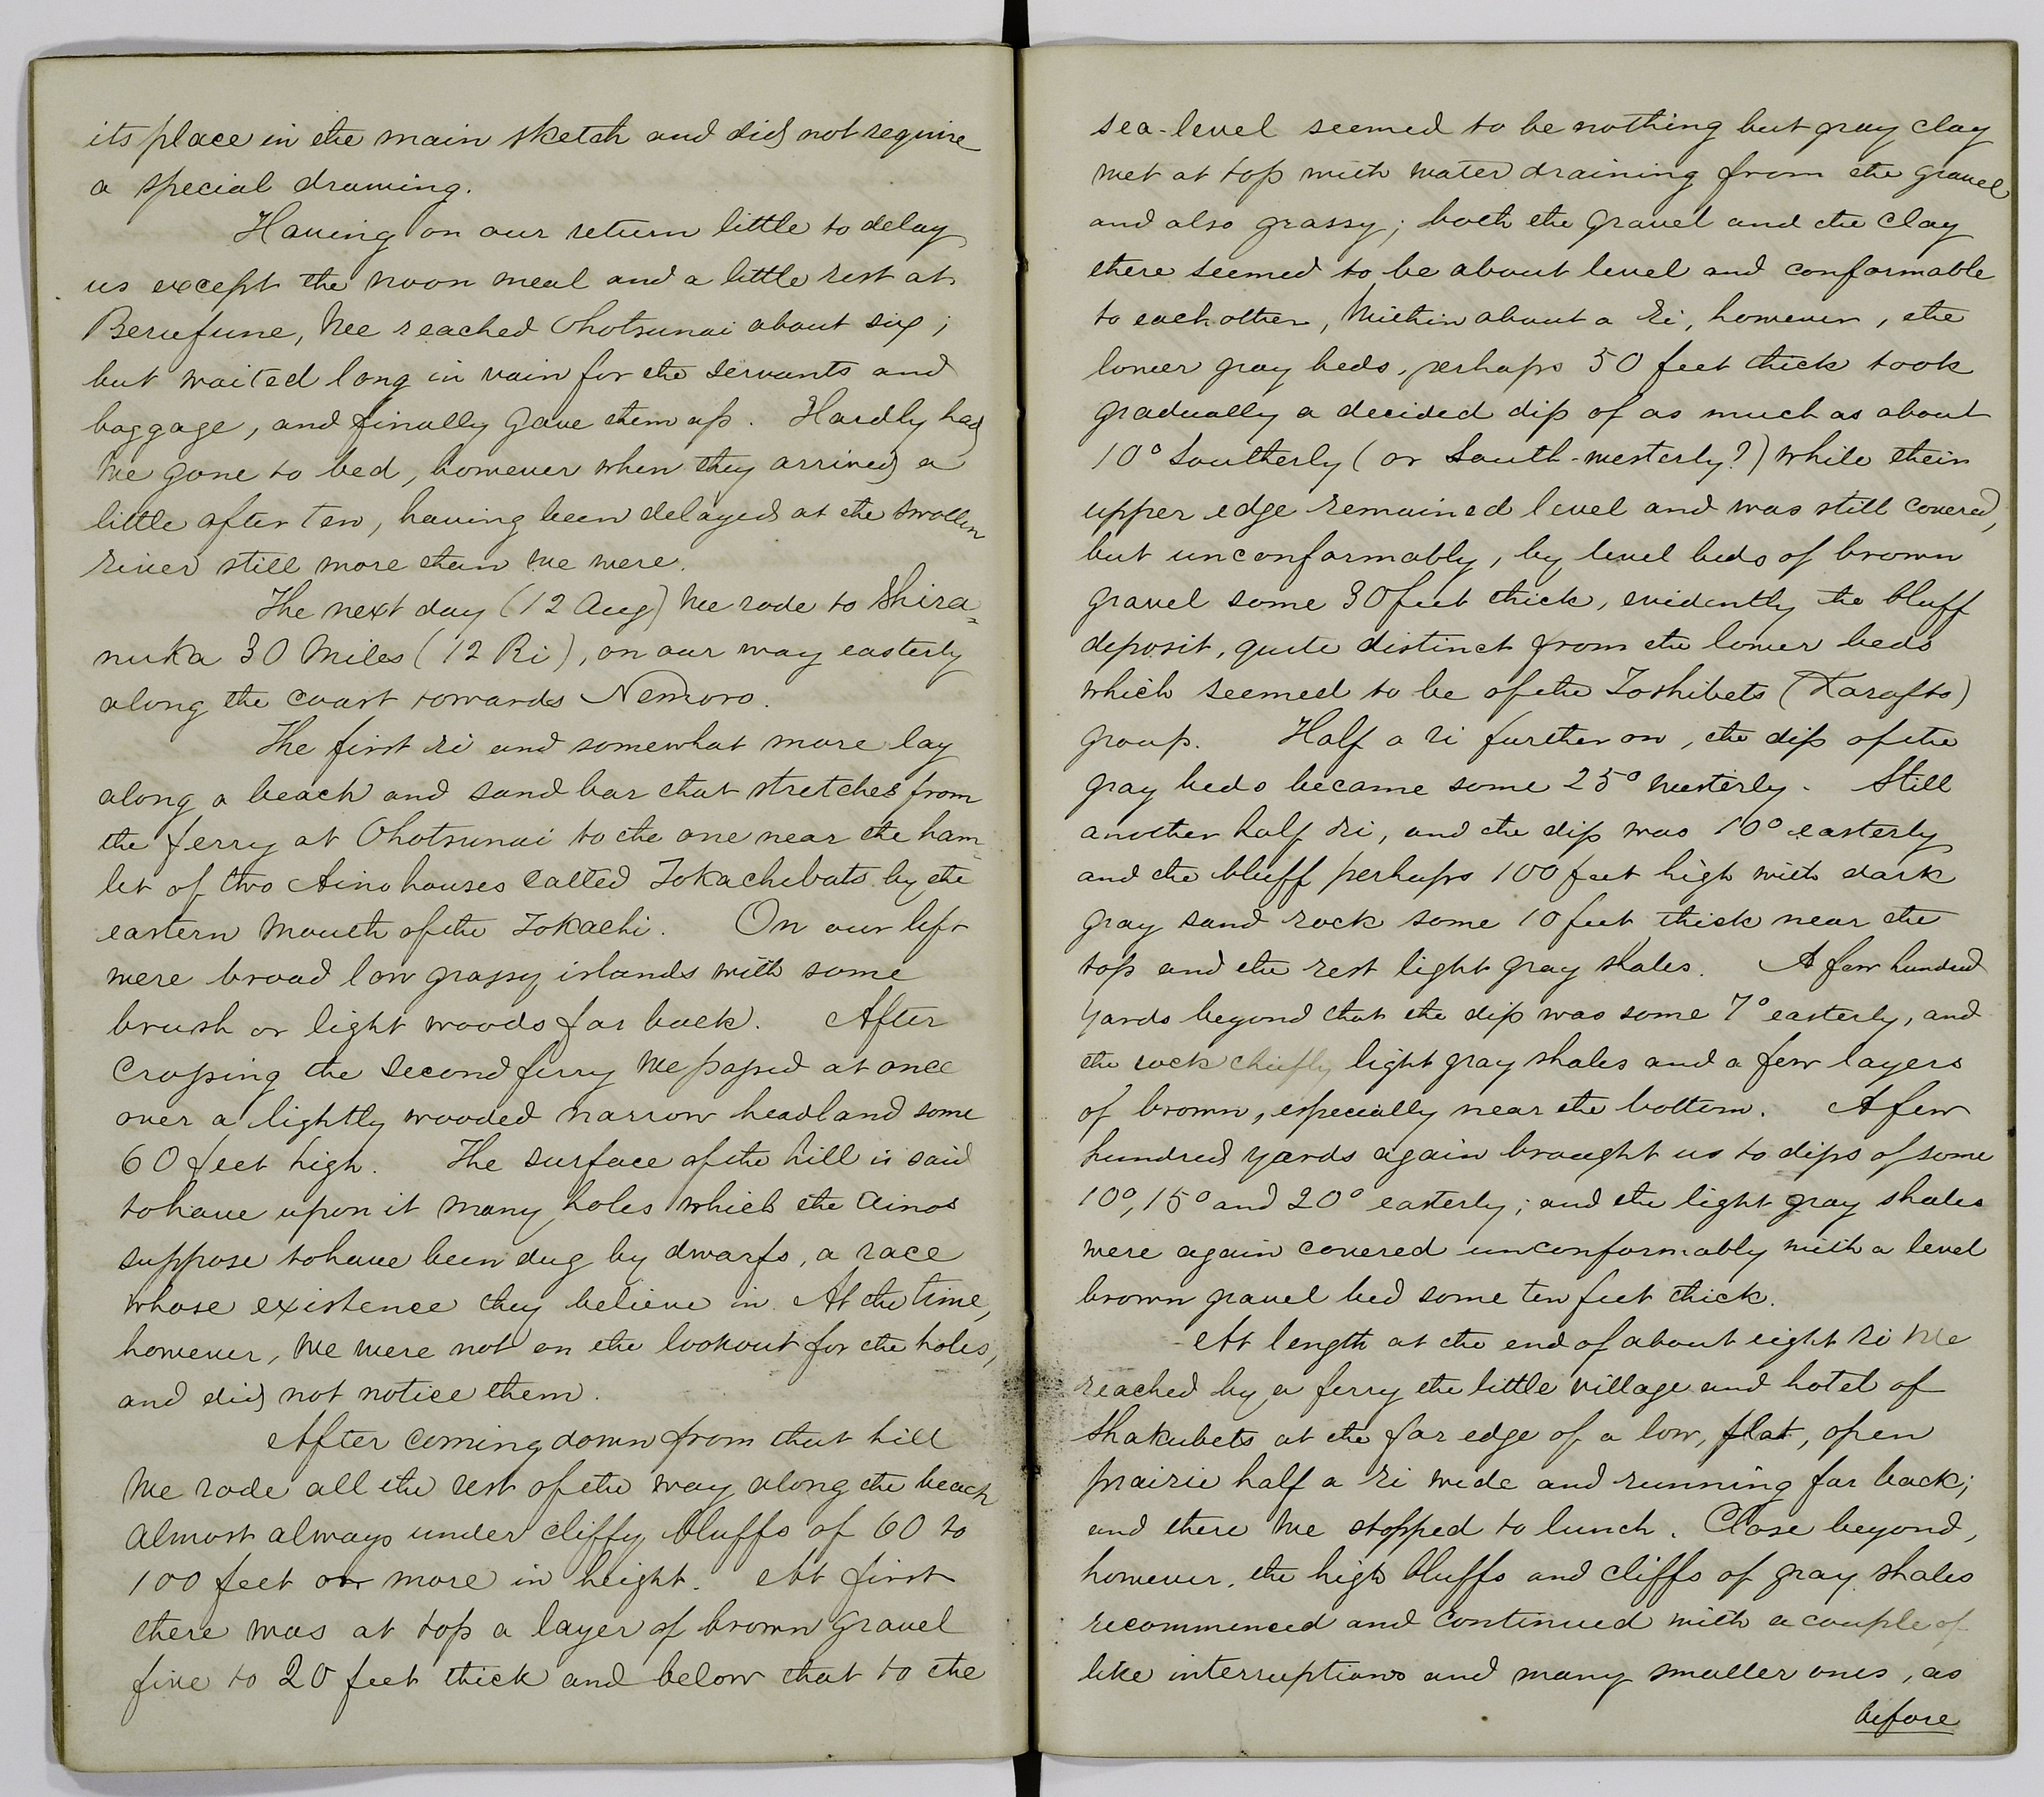 its place in the main sketch and did not require
a special drawing.
Having on our return little to delay
us except the noon meal and a little rest at
Berufune, we reached Ohotsunai about six;
but waited long in vain for the servants and
baggage, and finally gave them up. Hardly had
we gone to bed, however when they arrived a
little after ten, having been delayed at the swollen
river still more than we were.
The next day (12 Aug) we rode to Shira=
nuka 30 miles (12 Ri), on our way easterly
along the coast towards Nemoro.
The first ri and somewhat more lay
along a beach and sand bar that stretches from
the ferry at Ohotsunai to the one near the ham=
let of two Aino houses called Tokachibuts by the
eastern mouth of the Tokachi. On our left
were broad low grassy islands with some
brush or light woods far back. After
crossing the second ferry we passed at once
over a lightly wooded narrow headland some
60 feet high. The surface of the hill is said
to have upon it many holes which the Ainos
suppose to have been dug by dwarfs, a race
whose existence they believe in. At the time,
however, we were not on the lookout for the holes,
and did not notice them.
After coming down from that hill
we rode all the rest of the way along the beach
almost always under cliffy bluffs of 60 to
100 feet or more in height. At first
there was at top a layer of brown gravel
five to 20 feet thick and below that to the
sea-level seemed to be nothing but gray clay
wet at top with water draining from the gravel
and also grassy; both the gravel and the clay
there seemed to be about level and conformable
to each other, Within about a ri, however, the
lower gray beds, perhaps 50 feet thick took
gradually a decided dip of as much as about
10° Southerly (or South-westerly?) while their
upper edge remained level and was still covered,
but unconformably, by level beds of brown
gravel some 30 feet thick, evidently the bluff
deposit, quite distinct from the lower beds
which seemed to be of the Toshibets (Karafto)
group. Half a ri further on, the dip of the
gray beds became some 25° westerly. Still
another half ri, and the dip was 10° easterly
and the bluff perhaps 100 feet high with dark
gray sand rock some 10 feet thick near the
top and the rest light gray shales. A few hundred
yards beyond that the dip was some 7° easterly, and
the rock chiefly light gray shales and a few layers
of brown, especially near the bottom. A few
hundred yards again brought us to dips of some
10°, 15° and 20° easterly; and the light gray shales
were again covered unconformably with a level
brown gravel bed some ten feet thick.
At length at the end of about eight ri we
reached by a ferry the little village and hotel of
Shakubets at the far edge of a low, flat, open
prairie half a ri wide and running far back;
and there we stopped to lunch. Close beyond,
however, the high bluffs and cliffs of gray shales
recommenced and continued with a couple of
like interruptions and many smaller ones, as
before